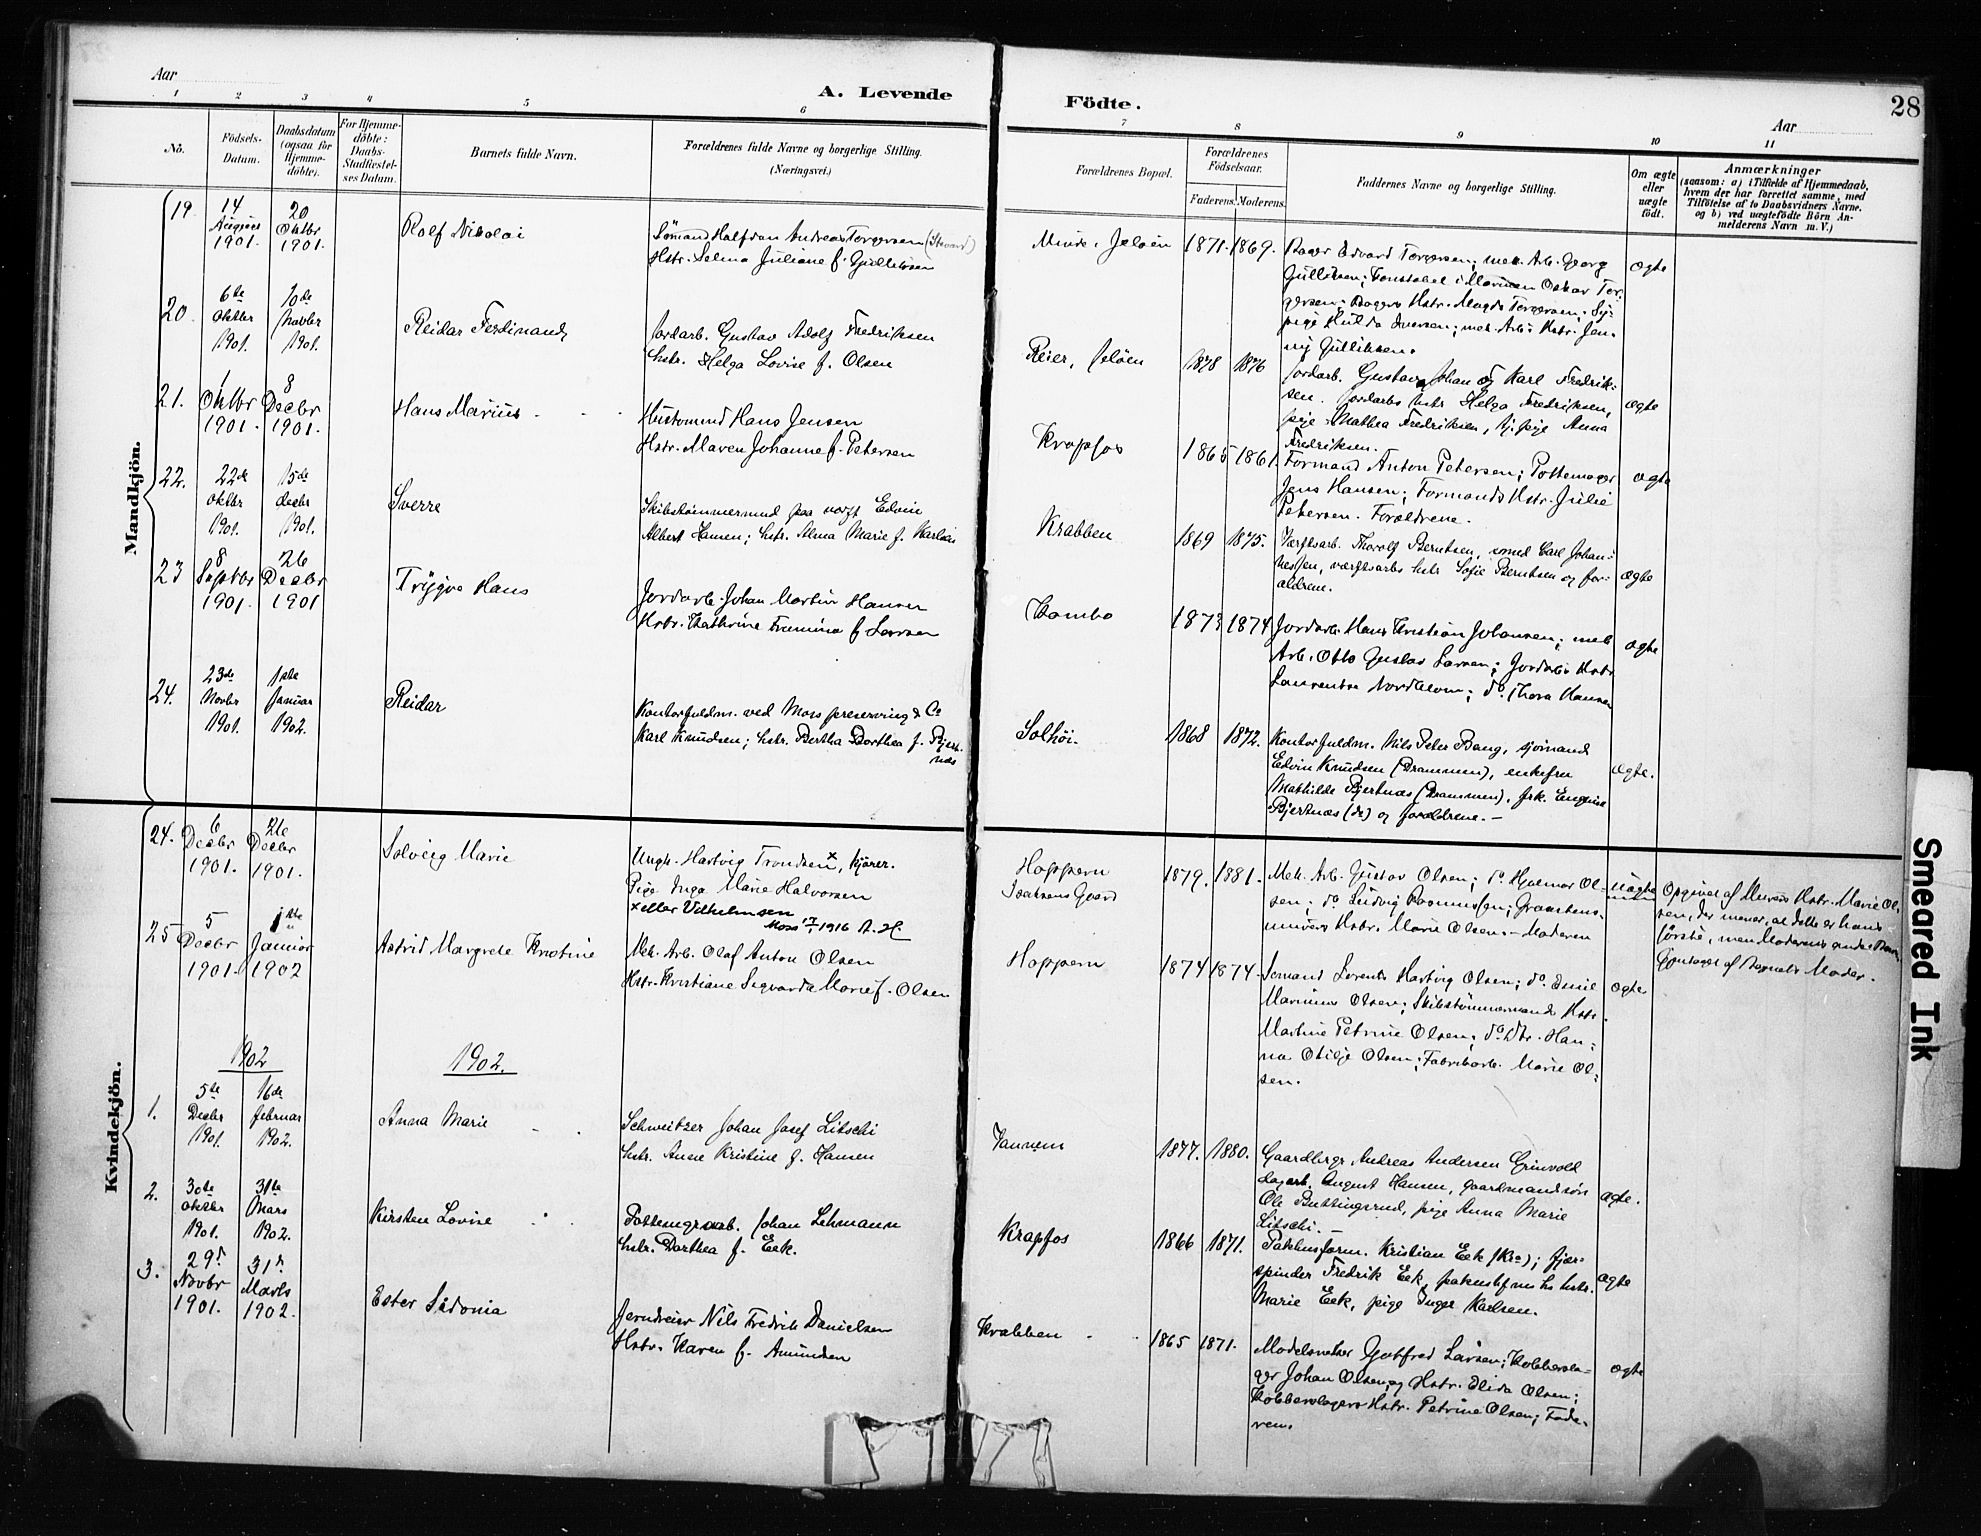 28
Aar
A. Levende
Födte.
Aar
1 2 3 4 5 6 7 8 9 10 11
No.
Födsels-Datum.
Daabsdatum (ogsaa for Hjemmedöbte).
For Hjemmedöbte: Daabs-Stadfæstelses Datum.
Barnets fulde Navn.
Forældrenes fulde Navne og borgerlige Stilling.
(Næringsvei.)
Forældrenes Bopæl.
Forældrenes Födselsaar.
Faderens. Moderens.
Faddernes Navne og borgerlige Stilling.
Om ægte eller uægte födt.
Anmærkninger
(saasom: a) i Tilfælde af Hjemmedaab, hvem der har forrettet samme, med Tilföielse af to Daabsvidners Navne. og b) ved uægtefödte Börn Anmelderens Navn m. V.)
Mandkjön.
19. 14 August 1901. 20 Oktbr 1901.
Rolf Nikolai
Sömand Halfdan Andreas Torgersen (Stuard)
Hstr. Selma Juliane f. Gulliksen
Jeløen 1871. 1869.
Bager Edvard Torgersen; mek. Arb. Georg
Gulliksen; Konstabel i Marinen Oskar Tor-
gersen; Bagers Hstr. Magda Torgersen; Sy-
pige Hulda Iversen; mek. Arb's Hstr. Jen-
ny Gulliksen.
ægte
20. 6te Oktbr 1901. 10de Novbr 1901.
Reidar Ferdinand
Jordarb. Gustav Adolf Fredriksen
hstr. Helga Lovise f. Olsen
Reier, Jeløen 1878 1876
Jordarb. Gustav, Johan og Karl Fredrik-
sen. Jordarbs hstr Helga Fredriksen,
pige Mathea Fredriksen, tj. pige Anna
Fredriksen.
ægte
21. 1 Oktbr 1901. 8 Decbr 1901.
Hans Marius
Hustomund Hans Jensen
Hstr. Maren Johanne f. Petersen
Krapfos 1865 1861.
Formand Anton Petersen; Pottemager
Jens Hansen; Formands Hstr. Julie
Petersen. Forældrene.
ægte
22. 22de Oktbr 1901. 15de decbr 1901.
Sverre
Skibstømmermand paa værft Edvin
Albert Hansen; hstr. Alma Marie f. Karlsen
Krabben 1869 1875.
Værftsarb. Thorolf Berntsen, smed Carl Johan-
nessen, værftsarbs hstr Sofie Berntsen og for-
ældrene.
ægte
23 8 Septbr 1901. 26 Decbr 1901
Trygve Hans
Jordarb. Johan Martin Hansen
Hstr. Kathrine Framina f. Larsen
Kambo 1873 1874
Jordarb. Hans Kristian Johansen; mek
Arb. Otto Gustav Larsen; Jordarb's Hstr
Laurentse Nordheim; do. Thora Hansen
ægte
24. 23de Novbr 1901. 1ste Januar 1902.
Reidar
Kontorfuldm. ved Moss preserving & Co
Karl Knudsen; hstr. Bertha Dorthea f. Bjert-
næs
Solhöi. 1868 1872.
Kontorfuldm. Nils Peter Bang, sjömand
Edvin Knudsen (Drammen), enkefru
Mathilde Bjertnæs (Drammen), frk.
Bjertnæs (do) og forældrene. -
ægte.
Kvindekjön.
24. 6 Decbr 1901. 26 Decbr 1901.
Solveig Marie
Ungk. Hartvig Trondsen x, kjører.
Pige Inga Marie Halvorsen
x eller Vilhelmsen
Moss 1916
Hoppern
Isaksens Gaard
1879. 1881.
Mek. Arb. Gustav Olsen; do. Hjalmar Ol-
sen; do Ludvig Rasmussen; Graastens-
murers Hstr. Marie Olsen - Moderen
uægte
Opgivet af Murers Hstr. Marie Ol-
sen, der mener, at dette er hans
förste, men Moderens andet Barn
Gjentaget af Barnets Moder.
25 5 Decbr 1901. 1ste Januar 1902
Astrid Margrete Kristine
Mek. Arb. Olaf Anton Olsen
Hstr. Kristiane Sigvarda Marie f. Olsen
Hoppern 1874 1874.
Sømand Lorents Hartvig Olsen; do. Emil
Marinius Olsen; Skibstømmermands Hstr.
Martine Petrine Olsen; do. Dtr. Han-
na Otilje Olsen; Fabrikarb. Marie Ol-
sen.
ægte
1902 1902.
1. 5te Decbr 1901. 16de februar 1902.
Anna Marie
Schweitzer Johan Josef Litschi
hstr. Anne Kristine f. Hansen
Vannem 1877. 1880.
Gaardbrgr Andreas Andersen Grinvold
dagarb. August Hansen, gaardmandssön
Ole Buttingsrud, pige Anna Marie
Litschi. -
ægte.
2. 30te oktbr 1901. 31te Mars 1902.
Kirsten Lovise
Pottemgrarb. Johan Lehmann
hstr. Dorthea f. Eek.
Krapfos 1866 1871.
Pakhusform. Kristian Eek (Kra); fjær-
spinder Fredrik Eek, hstr.
Marie Eek, pige Inger Karlsen.
ægte
3. 29d Novbr 1901. 31d Marts 1902.
Ester Sidonia
Jerndreier Nils Fredrik Danielsen
Hstr. Karen f. Amundsen
Krabben 1865 1871.
Modelsnekker Gotfred Larsen; Kobbersla-
ger Johan Olsen og Hstr. Elida Olsen;
Kobberslagers Hstr. Petrine Olsen; Fade-
ren.
ægte
Smeared Ink